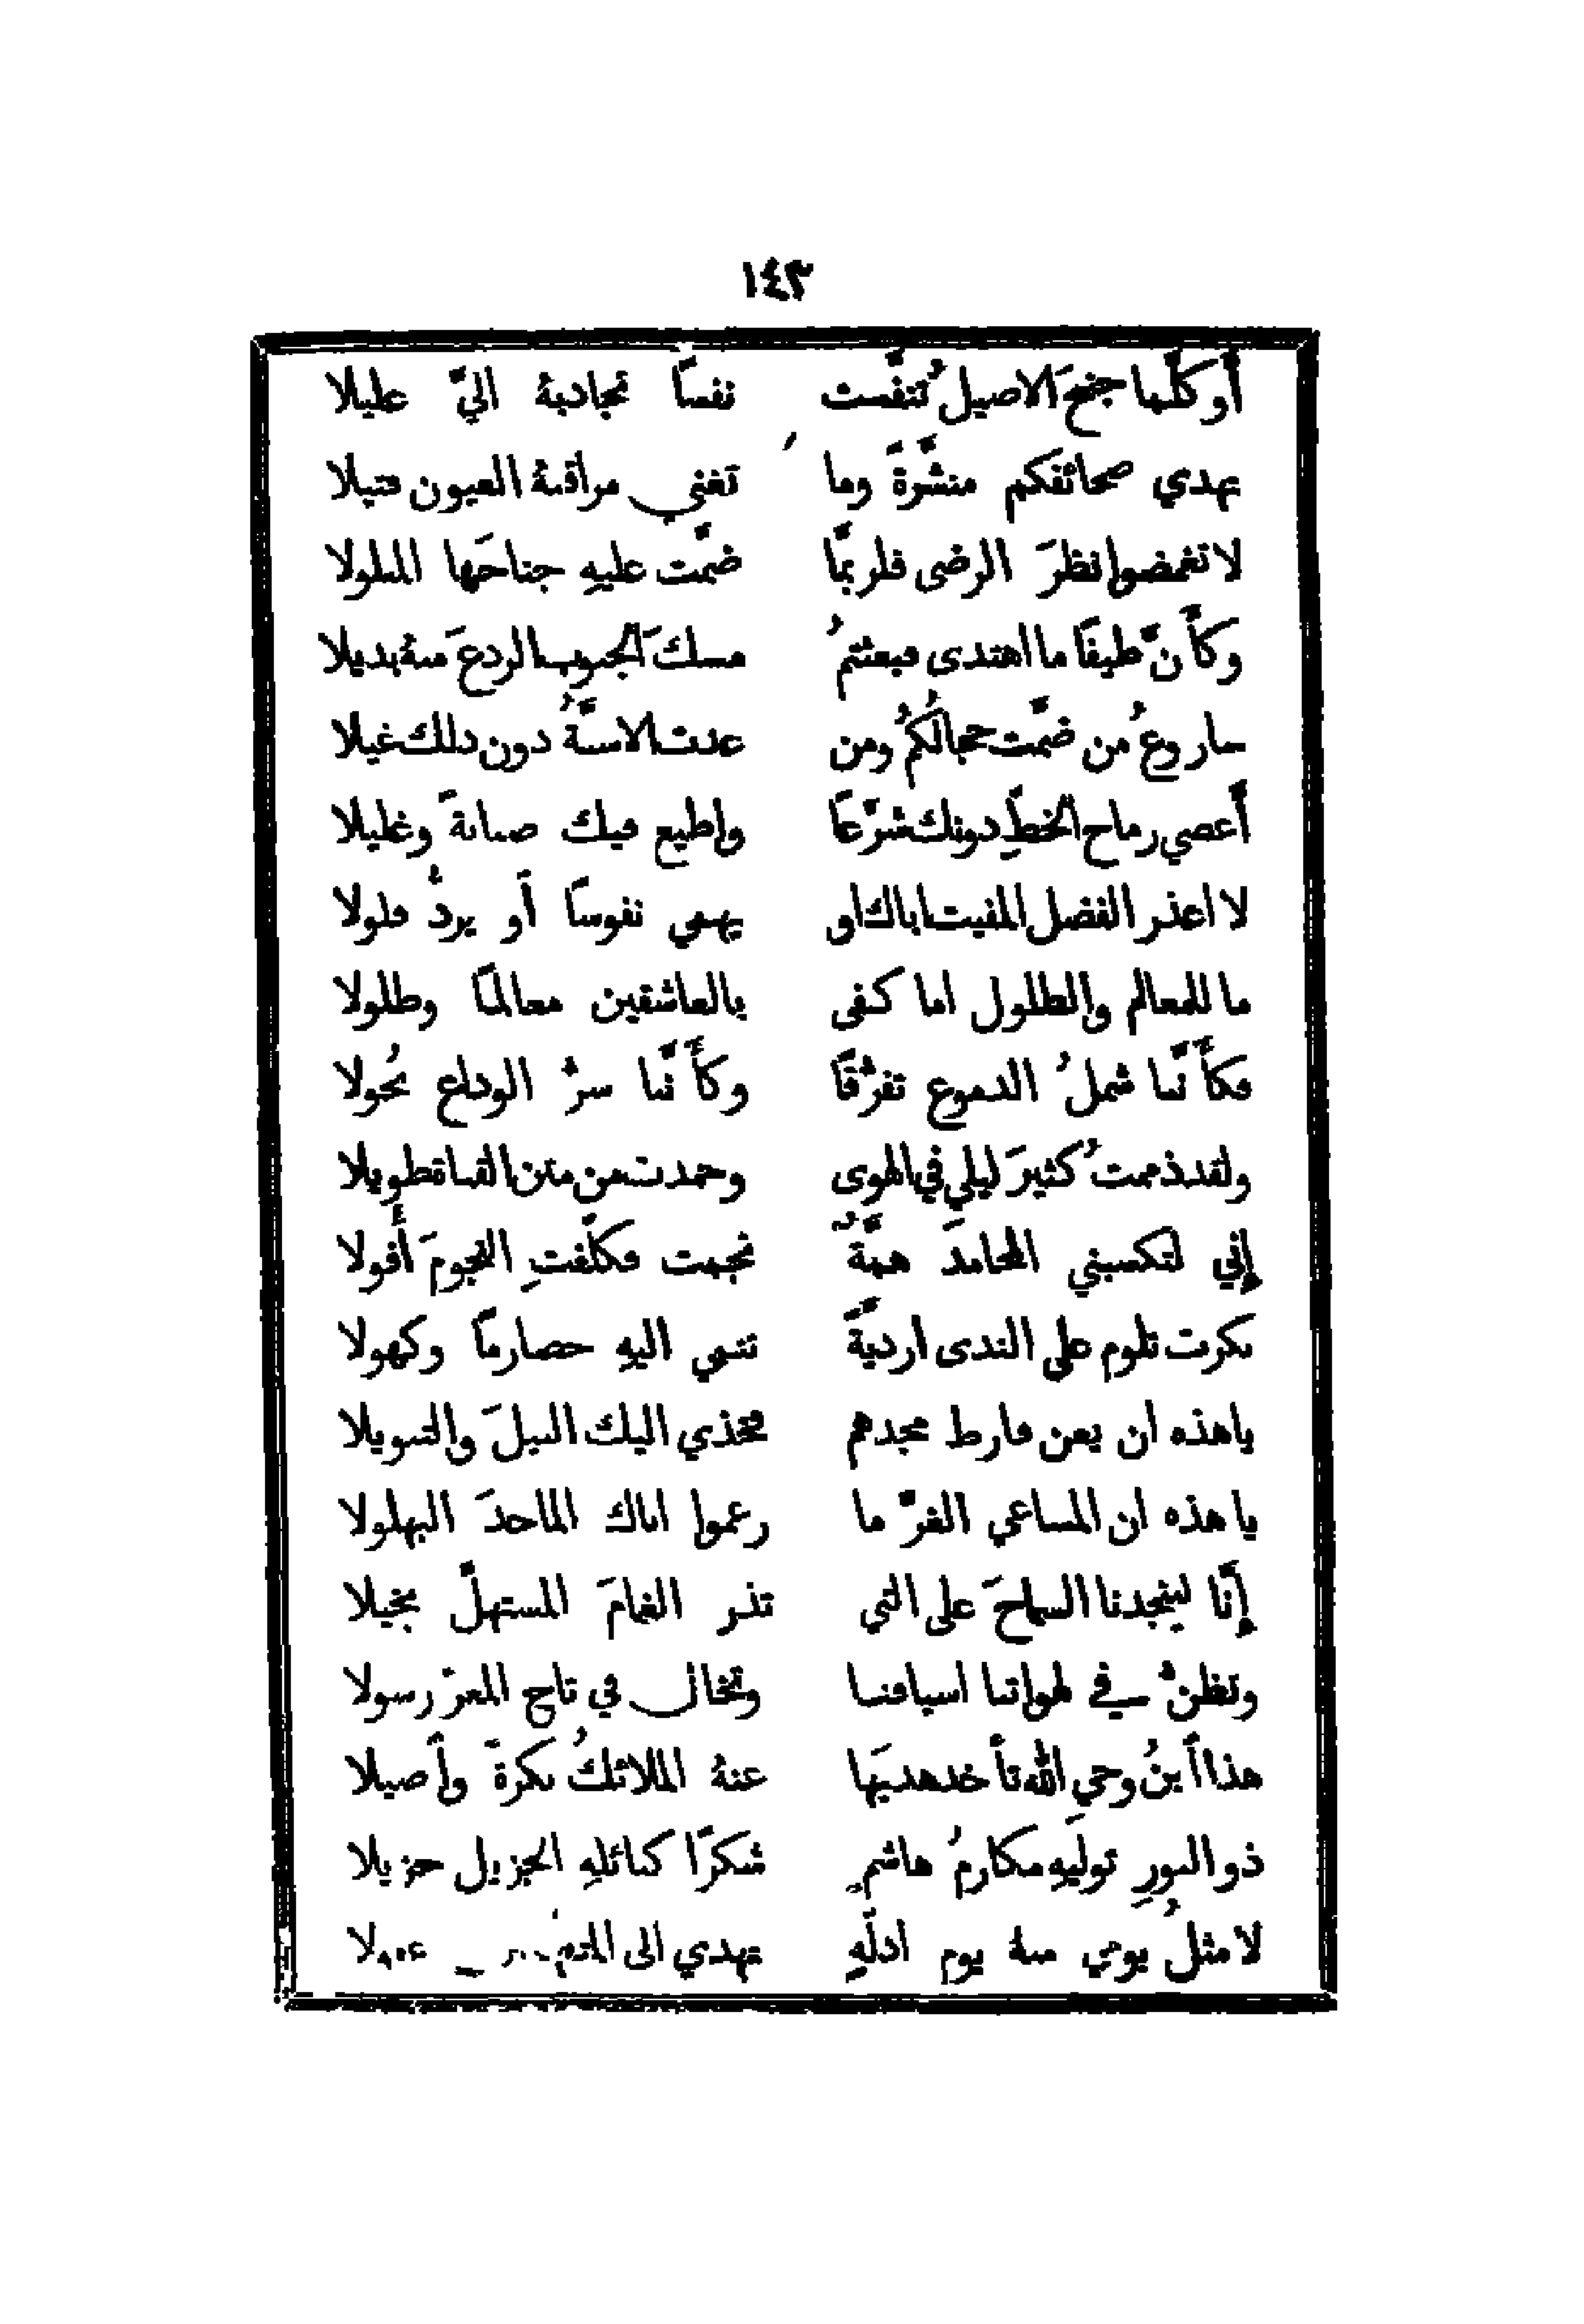 ١٤٣
أوكلَّما جنحَ الاصيل تنفَّست نفسًا تجاذبهُ اليَّ عليلا
يهدي صحائفكم منشَّرةً وما تغني مراقبة العيون فتيلا
لا تغمضوا نظرَ الرضى فلربَّما ضمَّت عليهِ جناحَها المبلولا
وكأَنَّ طيفًا ما اهتدى فبعثتمُ مسكَ الجيوب الردعَ منهُ بديلا
سار وعُ من ضمَّت حجالُكمُ ومن غدت الاسنَّةُ دون ذلك غيلا
أَعصي رماح الخطِّ دونك شرَّعًا واطيع فيك صبابةً وغليلا
لا اعذر الفضل المفيت اباك او يهمي نفوسًا أو يردُّ فلولا
ما للمعالم والطلول اما كفى بالعاشقين معالمًا وطلولا
فكأَنَّنا شملُ الدموع تفرُّقًا وكأَنَّنا سرُّ الوداع نُحولا
ولقد ذممتُ كثيرَ ليلي في الهوى وحمدت من متن القناة طويلا
إِني لتكسبني المحامدَ همَّةٌ نجمت فكلَّفتِ النجومَ أُفولا
بكرت تلوم على الندى ازديَّةٌ تنمي اليهِ حضارمًا وكهولا
يا هذه ان يعن فارط مجدهم فخذي اليك النيلَ والتنويلا
يا هذه ان المساعي الغرَّ ما زعموا اباك الماجدَ البهلولا
إِنَّا لينجدنا السماحَ على التي تذر الغمامَ المستهلَّ بخيلا
وتظنُّ في لهواتنا اسيافنا وتخال في تاج المعزّ رسولا
هذا اَبنُ وحي اللهِ تأخذ هديَها عنهُ الملائكُ بكرةً وأَصيلا
ذو النورِ توليهِ مكارمُ هاشمٍ شكرًا كنائلهِ الجزيل جزيلا
لا مثلُ يومي منهُ يوم ادلَّهِ تهدي الى